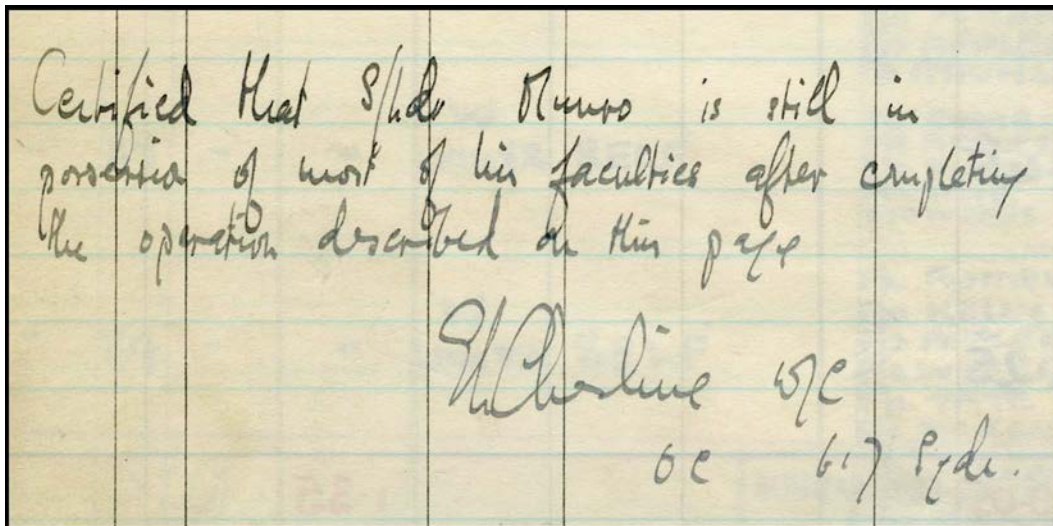 Certified that S/Ldr Munro is still in
possession of most of his faculties after completing
the operation described on this page
W/C
OC 617 Sqdn.